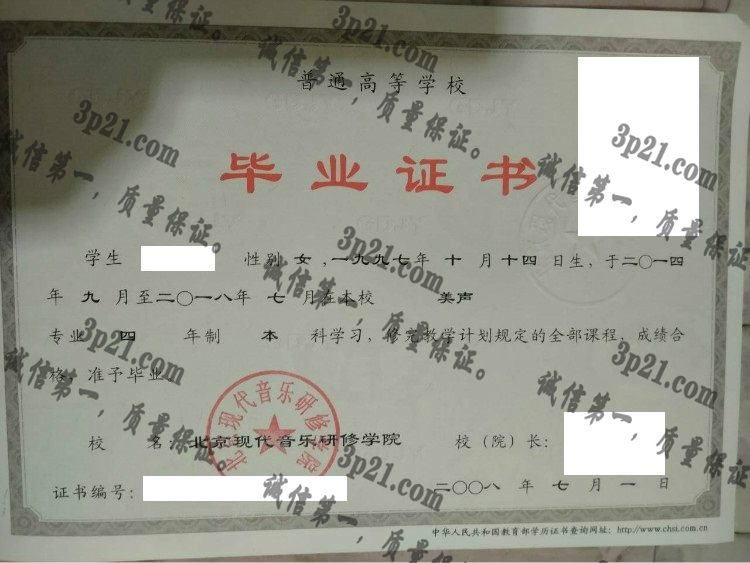 普通高等学校
毕业证书
学生 性别 女 ,一九九七年 十 月 十四 日生，于二〇一四
年 九 月至二〇一八年 七 月在本校 美声
专业 四 年制 本 科学习，修完教学计划规定的全部课程，成绩合
格，准予毕业。
校 名：北京现代音乐研修学院 校（院）长：
证书编号： 二〇〇八 年 七 月 一 日
中华人民共和国教育部学历证书查询网址：http://www.chsi.com.cn
北京现代音乐研修学院
3p21.com
诚信第一，质量保证。
3p21.com
诚信第一，质量保证。
3p21.com
诚信第一，质量保证。
3p21.com
诚信第一，质量保证。
3p21.com
诚信第一，质量保证。
3p21.com
诚信第一，质量保证。
3p21.com
诚信第一，质量保证。